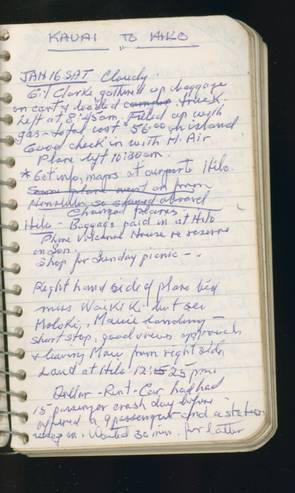 KAUAI TO HILO
JAN 16 SAT Cloudy
G. Clarke gathered up baggage
on cart & loaded truck.
Left at 8:45am. Filled up with
gas - total cost $56.00 on island
Good check in with H. Air
Plane left 10:30am.
* Get info, maps at airport Hilo.
Same plane went on from
Honolulu, so stayed aboard
Changed planes.
Hilo - Baggage paid in at Hilo
Phone Volcano House re reserve
on Sun.
Shop for Sunday picnic -
Right hand side of plane bad
miss Waikiki but see
Moloki, Maui landing -
short stop, good views approach
& leaving Maui from right side
Land at Hilo 12:25 pm
Dollar-Rent-Car had had
15 passenger crash day before
offered a 9 passenger and a station
wagon. Waited 30 min. for latter